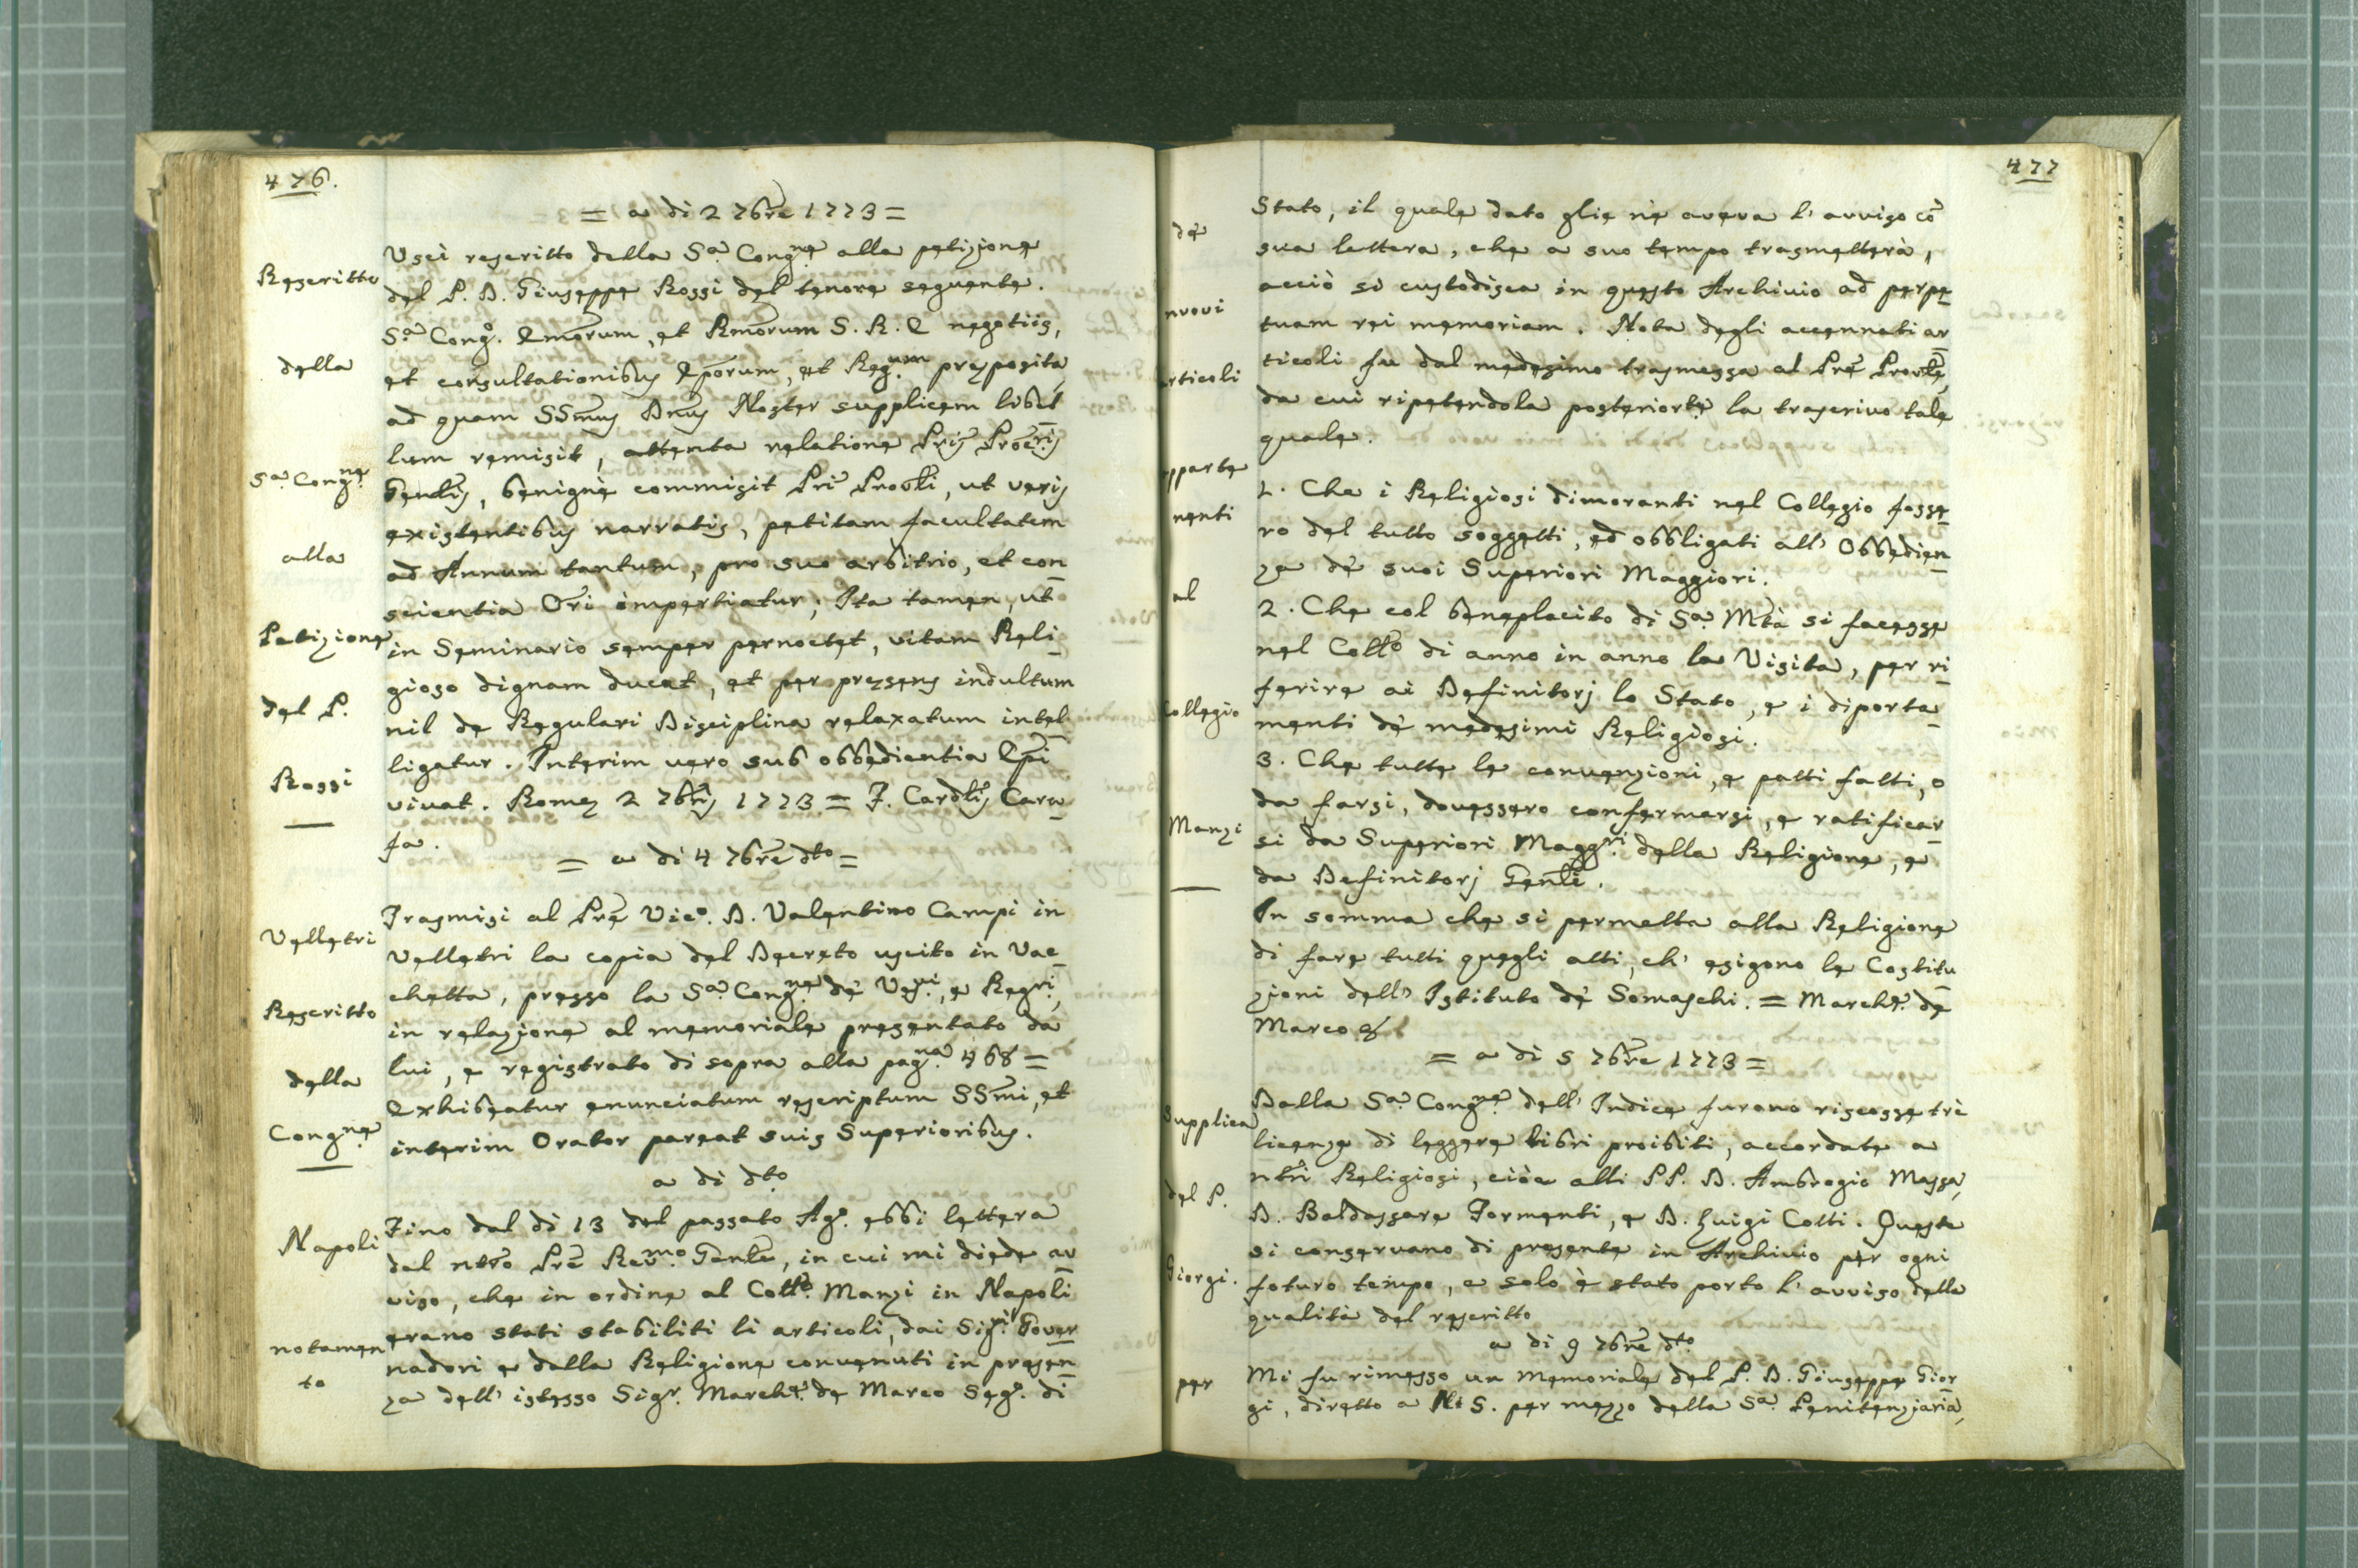 476.
= a di 2 7bre 1773 =
Uscì rescritto della Sa. Congne alla petizione
del P. D. Giuseppe Rossi del tenore seguente.
Sa. Cong. Emorum, et Rmorum S. R. E negotiis,
et consultationibus Eporum, et Regum preposita
ad quam SSmus Dnus Noster supplicem libel
lum remisit, attenta relatione Pris Procris
Genlis, benignè commisit Pri Provli, ut veris
existentibus narratis, petitam facultatem
ad Annum tantum, pro suo arbitrio, et con
scientia Ori impertiatur; Ita tamen, ut
in Seminario semper pernoctet, vitam Reli
gioso dignam ducat, et per presens indultum
nil de Regulari Disciplina relaxatum intel
ligatur. Interim vero sub obbedientia Epi
vivat. Rome 2 7bris 1773 = F. Cardlis Cara
fa.
= a di 4 7bre dto =
Trasmisi al Pre Vico. D. Valentino Campi in
Velletri la copia del Decreto uscito in Vac
chetta, presso la Sa. Congne de' Vesvi, e Regri,
in relazione al memoriale presentato da
lui, e registrato di sopra alla pagna 468 =
Exhibeatur enunciatum rescriptum SSmi, et
interim Orator pareat suis Superioribus.
a di dto
Fino dal di 13 del passato Ago. ebbi lettera
dal ntro Pre Revmo Genle, in cui mi diede av
viso, che in ordine al Collo. Manzi in Napoli
erano stati stabiliti li articoli, dai Sigri Gover
nadori e dalla Religione convenuti in presen
za dell' istesso Sigr. Marche. de Marco Sego. di
Rescritto
della
Sa. Congne
alla
Petizione
del P.
Rossi
Velletri
Rescritto
della
Congne
Napoli
notamen
to
477
Stato, il quale dato glie ne aveva l' avviso cò
sua lettera, che a suo tempo trasmetterà,
acciò si custodisca in questo Archivio ad perpe
tuam rei memoriam. Nota degli accennati ar
ticoli fu dal medesimo trasmessa al Pre Provle,
da cui ripetendola posteriorte la trascrivo tale
quale.
1. Che i Religiosi dimoranti nel Collegio fosse
ro del tutto soggetti, ed obbligati all' Obbedien
za de' suoi Superiori Maggiori.
2. Che col beneplacito di Sa. Mtà si facesse
nel Collo di anno in anno la Visita, per ri
ferire ai Definitorj lo Stato, e i diporta
menti de' medesimi Religiosi.
3. Che tutte le convenzioni, e patti fatti, o
da farsi, dovessero confermarsi, e ratificar
si da Superiori Maggri della Religione, e
da Definitorj Genli.
In somma che si permetta alla Religione
di fare tutti quegli atti, ch' esigono le Costitu
zioni dell' Istituto de' Somaschi. = Marche. de
Marco
= a di 5 7bre 1773 =
Dalla Sa. Congne dell' Indice furono riscosse trè
licenze di leggere libri proibiti, accordate a
ntri Religiosi, cioè alli PP. D. Ambrogio Massa,
D. Baldassare Formenti, e D. Luigi Cotti. Queste
si conservano di presente in Archivio per ogni
futuro tempo, e solo è stato porto l' avviso della
qualità del rescritto
a di 9 7bre dto
Mi fu rimesso un memoriale del P. D. Giuseppe Gior
gi, diretto a N. S. per mezzo della Sa. Penitenziaria,
de'
nuovi
articoli
apparte
nenti
al
Collegio
Manzi
Supplica
del P.
Giorgi.
per